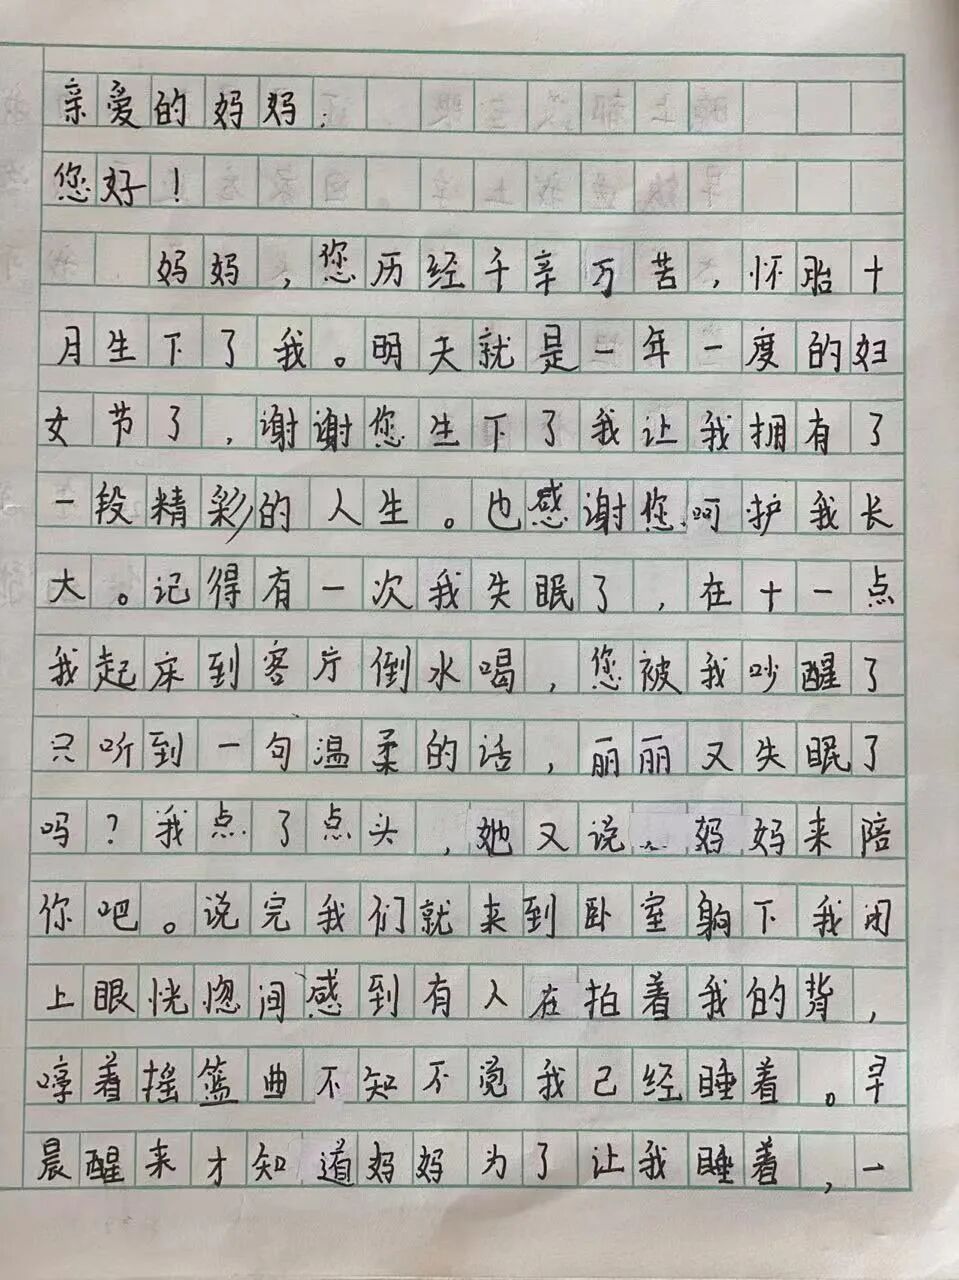 亲爱的妈妈：
您好！
妈妈，您历经千辛万苦，怀胎十
月生下了我。明天就是一年一度的妇
女节了，谢谢您生下了我让我拥有了
一段精彩的人生。也感谢您呵护我长
大。记得有一次我失眠了，在十一点
我起床到客厅倒水喝，您被我吵醒了
只听到一句温柔的话，丽丽又失眠了
吗？我点了点头，她又说，妈妈来陪
你吧。说完我们就来到卧室躺下我闭
上眼恍惚间感到有人在拍着我的背，
哼着摇篮曲不知不觉我已经睡着。早
晨醒来才知道妈妈为了让我睡着，一